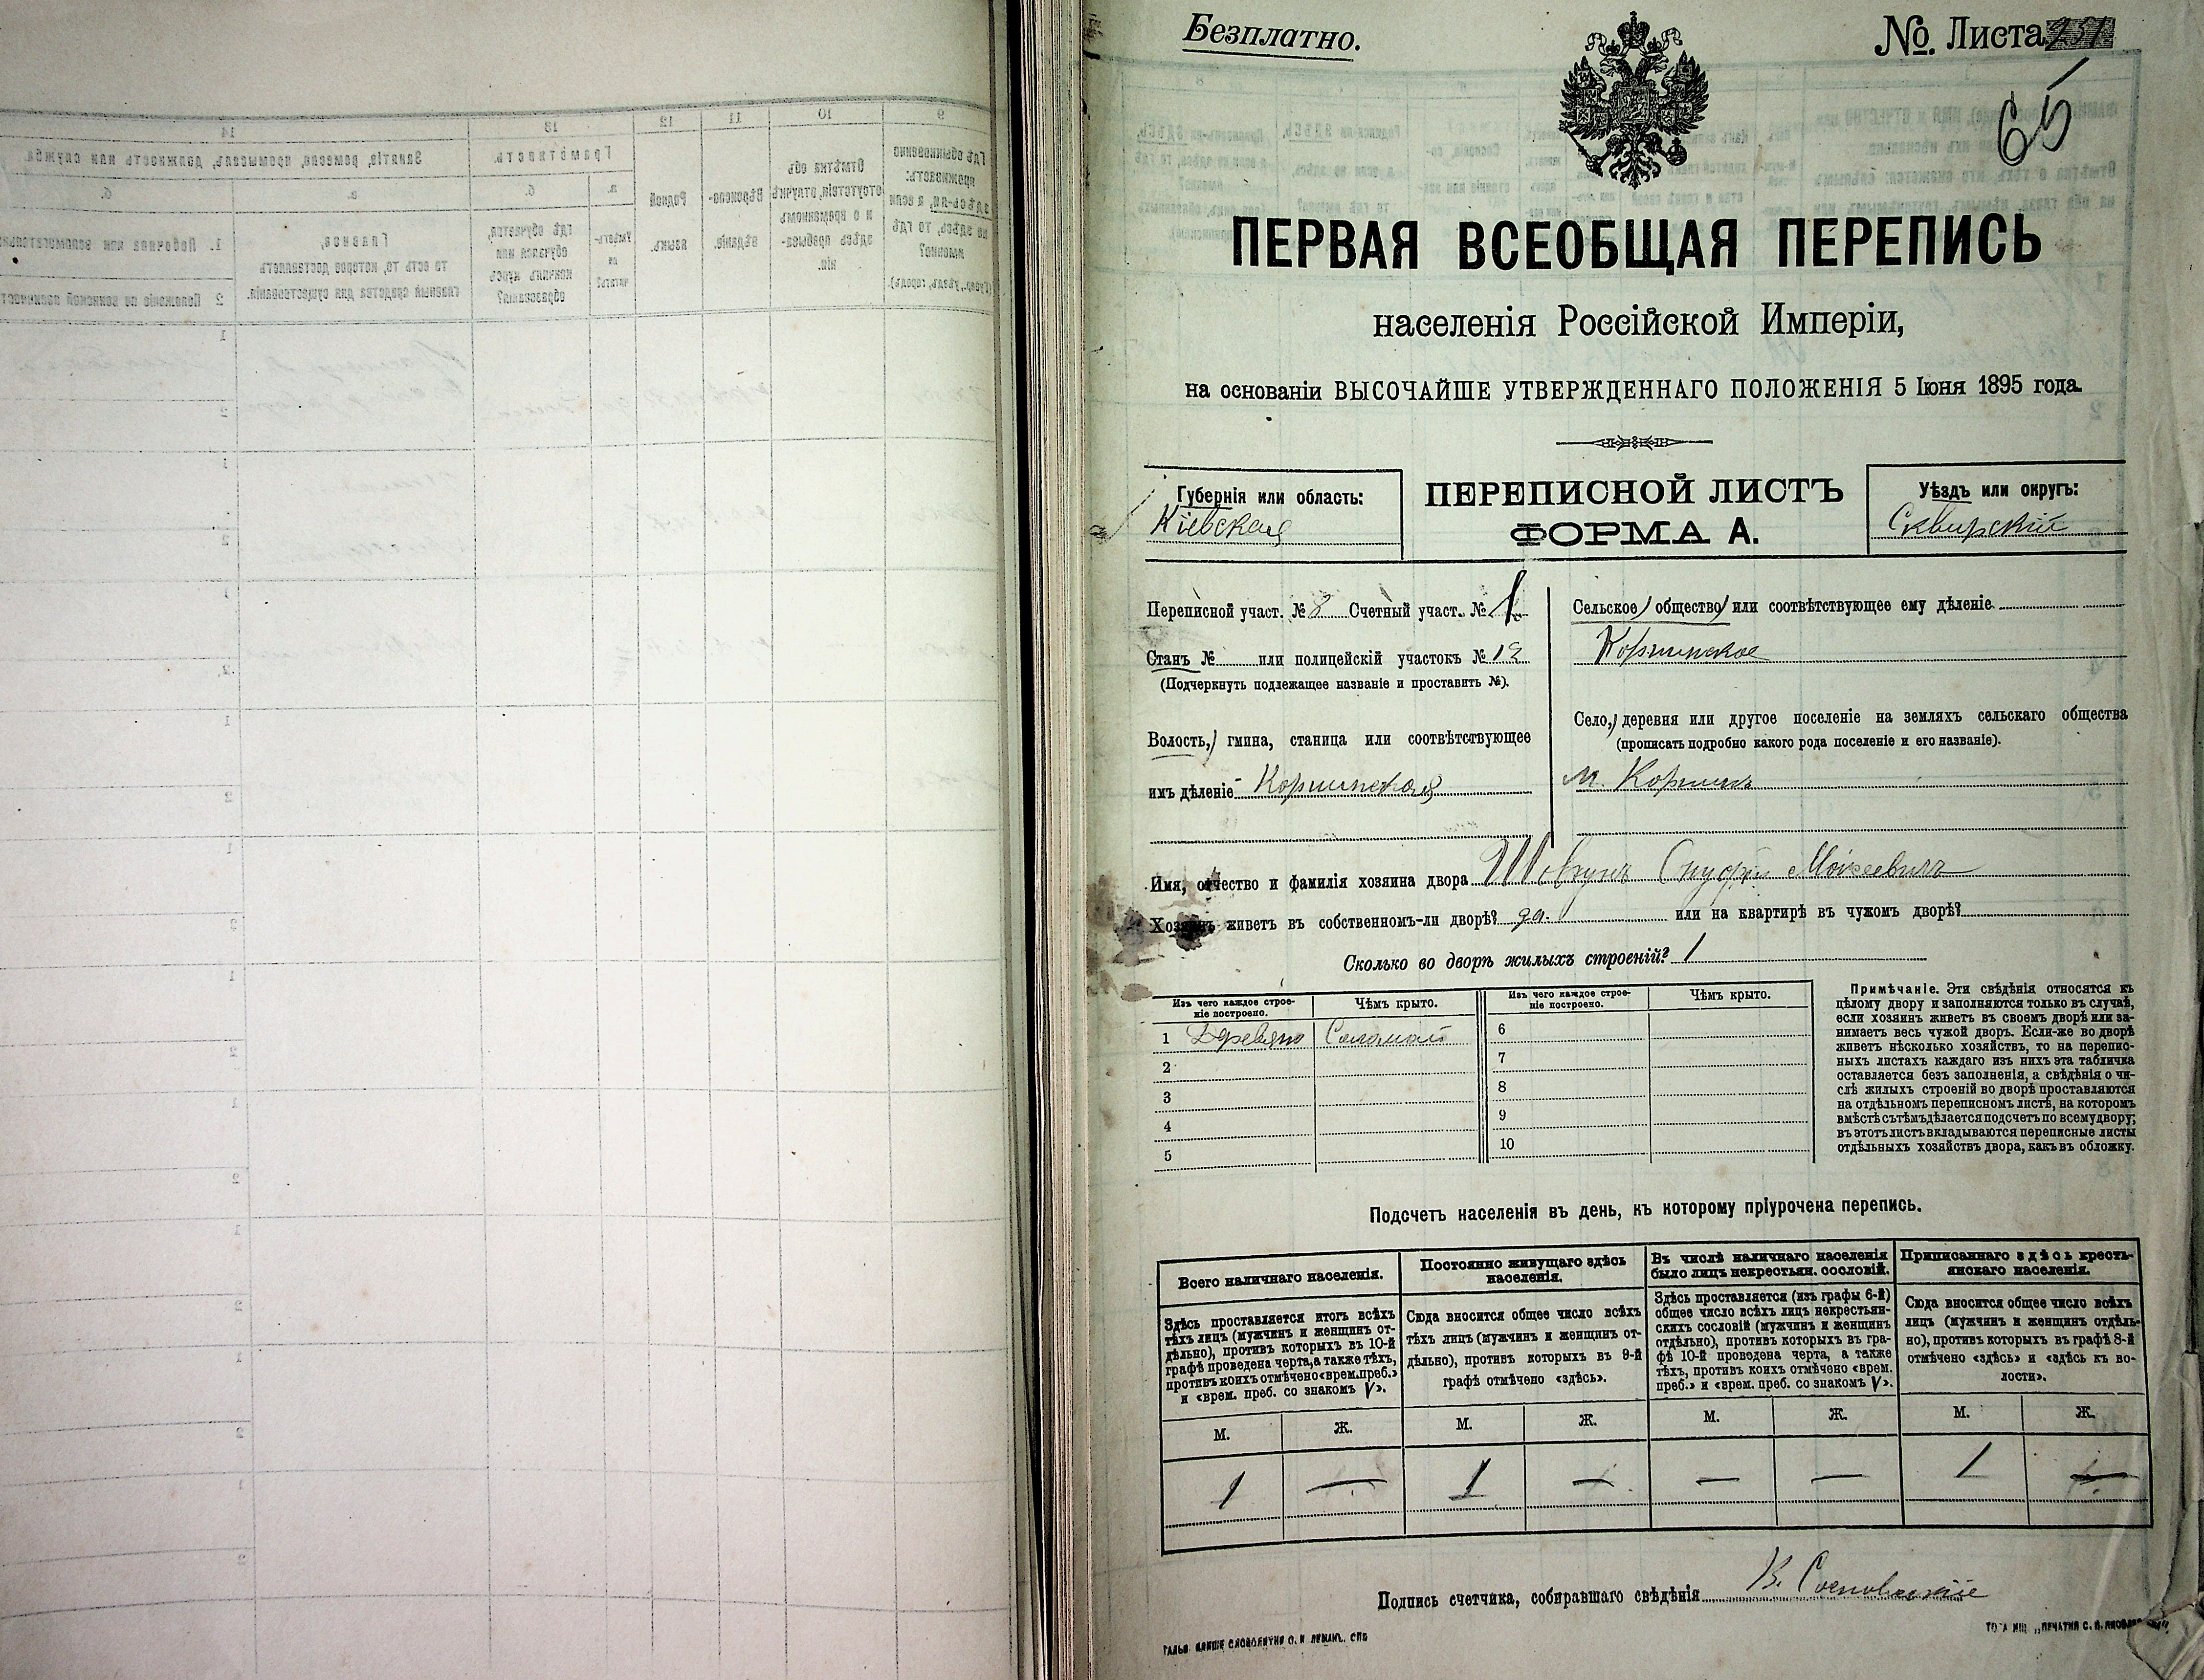 Безплатно.
№. Листа
65
ПЕРВАЯ ВСЕОБЩАЯ ПЕРЕПИСЬ
населенія Россійской Имперіи,
на основаніи ВЫСОЧАЙШЕ УТВЕРЖДЕННАГО ПОЛОЖЕНІЯ 5 Іюня 1895 года.
Губернія или область:
Кіевская
ПЕРЕПИСНОЙ ЛИСТЪ
ФОРМА А.
Уѣздъ или округъ:
Сквирскій
Переписной участ. № 8 Счетный участ. № 1
Станъ № или полицейскій участокъ № 12
(Подчеркнуть подлежащее названіе и проставить №).
Волость, гмина, станица или соотвѣтствующее
имъ дѣленіе Корнинская
Сельское общество или соотвѣтствующее ему дѣленіе
Корнинское
Село, деревня или другое поселеніе на земляхъ сельскаго общества
(прописать подробно какого рода поселеніе и его названіе).
м. Корнинъ
Имя, отчество и фамилія хозяина двора Онуфрій Моисеевичъ
Хозяинъ живетъ въ собственномъ-ли дворѣ? да. или на квартирѣ въ чужомъ дворѣ?
Сколько во дворѣ жилыхъ строеній? 1
Изъ чего каждое строе-
ніе построено.
Чѣмъ крыто.
Изъ чего каждое строе-
ніе построено.
Чѣмъ крыто.
1 Дерев
Соломой
2
3
4
5
6
7
8
9
10
Примѣчаніе. Эти свѣдѣнія относятся къ
цѣлому двору и заполняются только въ случаѣ,
если хозяинъ живетъ въ своемъ дворѣ или за-
нимаетъ весь чужой дворъ. Если-же во дворѣ
живетъ нѣсколько хозяйствъ, то на перепис-
ныхъ листахъ каждаго изъ нихъ эта табличка
оставляется безъ заполненія, а свѣдѣнія о чи-
слѣ жилыхъ строеній во дворѣ проставляются
на отдѣльномъ переписномъ листѣ, на которомъ
вмѣстѣ съ тѣмъ дѣлается подсчетъ по всему двору;
въ этотъ листъ вкладываются переписные листы
отдѣльныхъ хозяйствъ двора, какъ въ обложку.
Подсчетъ населенія въ день, къ которому пріурочена перепись.
Всего наличнаго населенія.
Здѣсь проставляется итогъ всѣхъ
тѣхъ лицъ (мужчинъ и женщинъ от-
дѣльно), противъ которыхъ въ 10-й
графѣ проведена черта, а также тѣхъ,
противъ коихъ отмѣчено «врем. преб.»
и «врем. преб. со знакомъ V».
Постоянно живущаго здѣсь
населенія.
Сюда вносится общее число всѣхъ
тѣхъ лицъ (мужчинъ и женщинъ от-
дѣльно), противъ которыхъ въ 9-й
графѣ отмѣчено «здѣсь».
Въ числѣ наличнаго населенія
было лицъ некрестьян. сословій.
Здѣсь проставляется (изъ графы 6-й)
общее число всѣхъ лицъ некрестьян-
скихъ сословій (мужчинъ и женщинъ
отдѣльно), противъ которыхъ въ гра-
фѣ 10-й проведена черта, а также
тѣхъ, противъ коихъ отмѣчено «врем.
преб.» и «врем. преб. со знакомъ V».
Приписаннаго здѣсь кресть-
янскаго населенія.
Сюда вносится общее число всѣхъ
лицъ (мужчинъ и женщинъ отдѣль-
но), противъ которыхъ въ графѣ 8-й
отмѣчено «здѣсь» и «здѣсь къ во-
лости».
М. Ж. М. Ж. М. Ж. М. Ж.
1 — 1 — — — 1 —
Подпись счетчика, собиравшаго свѣдѣнія В.